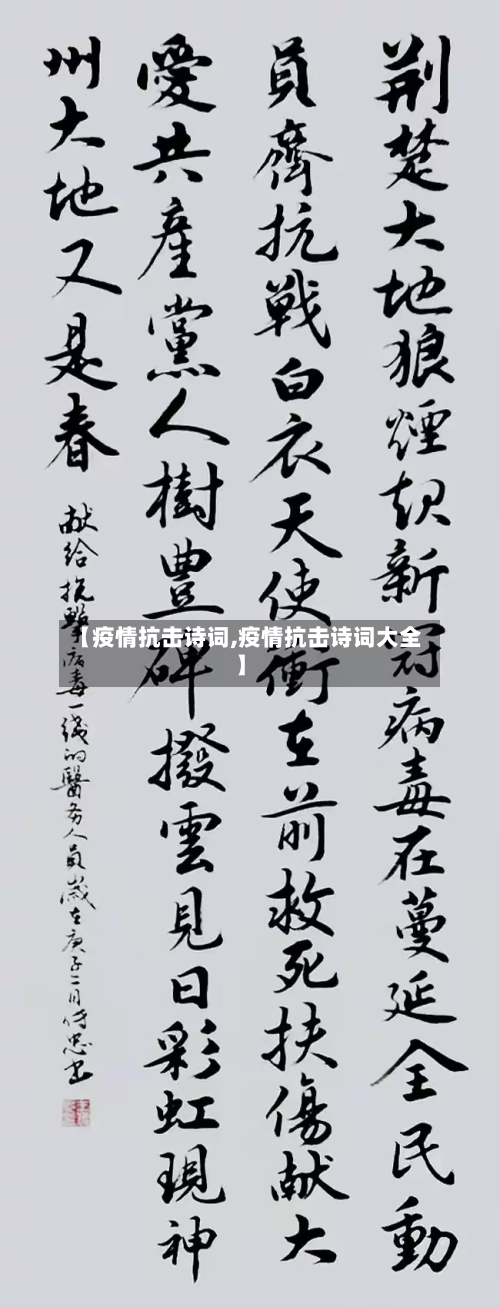 荆楚大地狼煙起新冠病毒在蔓延全民動
員齊抗戰白衣天使衝在前救死扶傷献大
愛共產黨人樹豐碑撥雲見日彩虹現神
州大地又是春
献给抗擊病毒一线的醫务人員歲在庚子二月侍忠书
【疫情抗击诗词,疫情抗击诗词大全
】